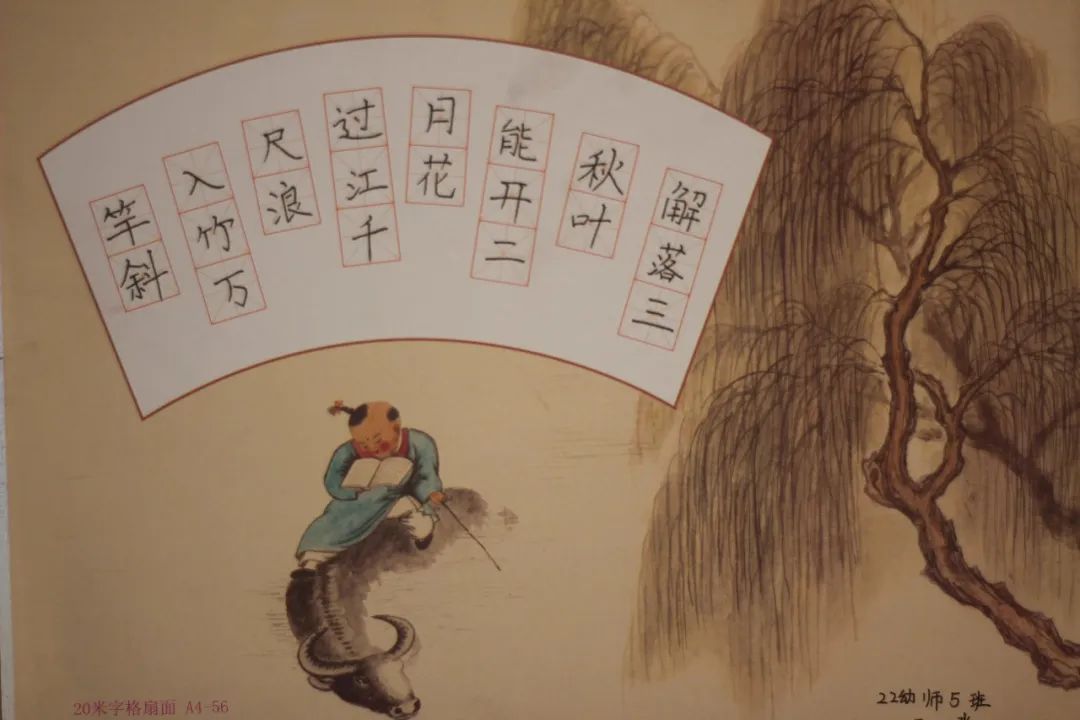 解落三
秋叶
能开二
月花
过江千
尺浪
入竹万
竿斜
20米字格扇面 A4-56
22幼师5班